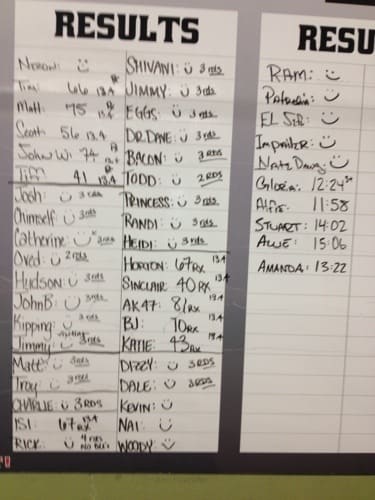 RESULTS
Tim 66 13.4
Matt 75
Scott 56 13.4
John W: 74
Tiff 41 13.4
Josh: 3 rds
Chimself 3 rds
Catherine 3 rds
Oved: 2 rds
Hudson: 3 rds
John B: 3 rds
Kipping: 3 rds
Jimmy 3 rds
Matt: 3 rds
Troy 3 rds
CHARLIE: 3 RDS
ISI: 67 RX 13.4
RICK:
SHIVANI: 3 rds
JIMMY: 3 rds
EGGS: 3 rds
DR. DANE: 3 rds
BACON: 3 RDS
TODD: 2 RDS
PRINCESS: 3 rds
RANDI: 3 rds
HEIDI: 3 rds
HORTON: 67 RX 13.4
SINCLAIR 40 RX 13.4
AK47: 81 RX 13.4
BJ: 70 RX 13.4
KATIE: 43 RX 13.4
DIZZY: 3 RDS
DALE: 3 RDS
KEVIN:
NAI:
WOODY:
RESU
RAM:
EL SID:
Gloria: 12:24
Alfie: 11:58
STUART: 14:02
15:06
AMANDA: 13:22